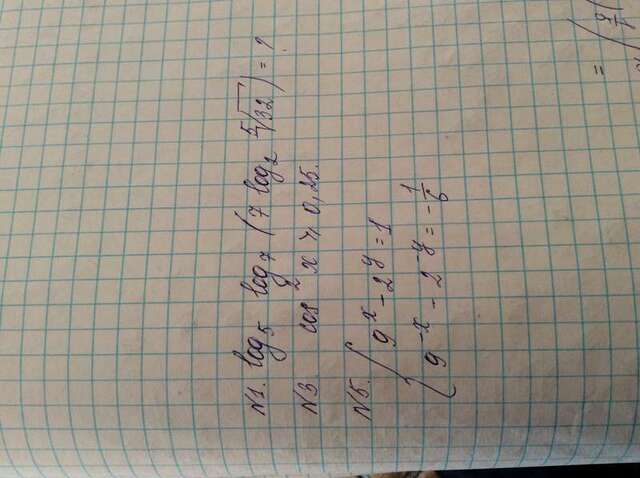 N1. log₅ log₇ (7 log₂ ⁵√32) = ?
N3 cos² x ≥ 0,25.
N5. { 9ˣ - 2ʸ = 1
9⁻ˣ - 2⁻ʸ = - 1/6